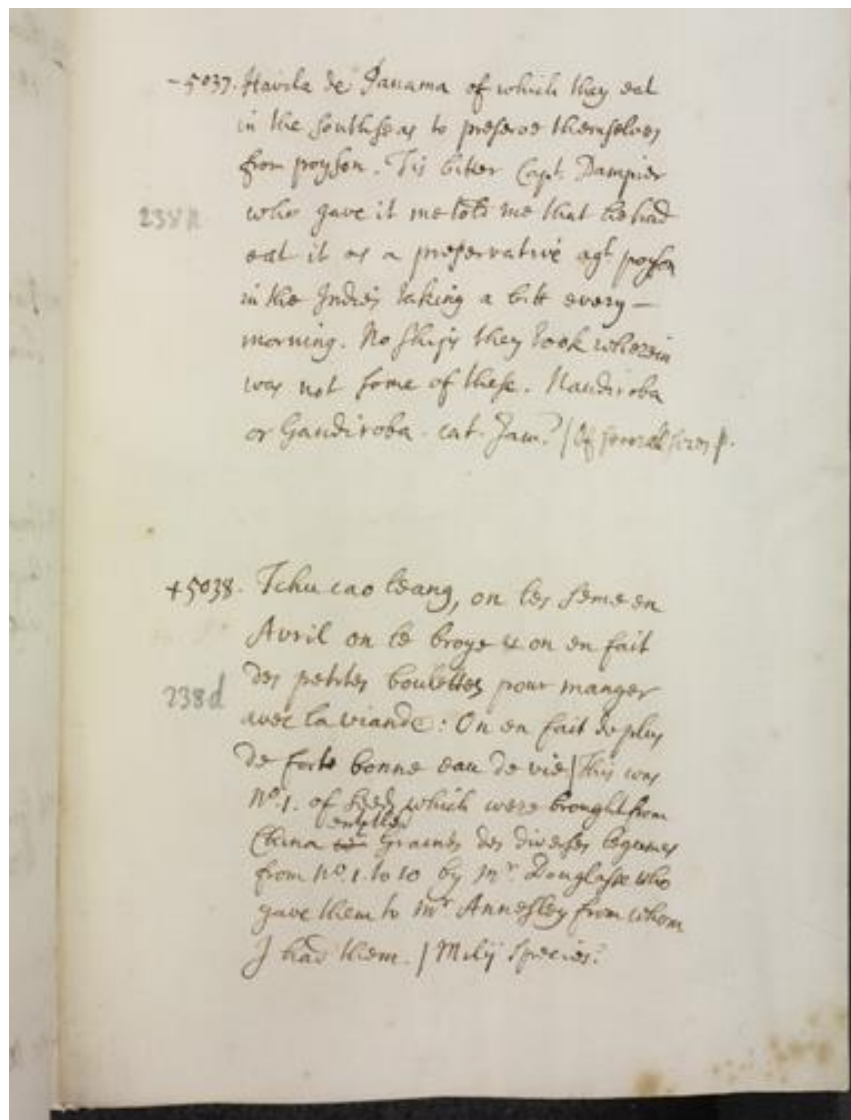 - 5037. Havila de Panama of which they eat
in the southseas to preserve themselves
from poyson. Tis bitter Capt. Dampier
238
who gave it me told me that he had
eat it as a preservative agt poyson
in the Indies taking a bitt every —
morning. No ships they took wherein
was not some of these. Nandiroba
or Gandiroba. cat. Jam.? | Of severall sizes
+ 5038. Tchu cao leang, on les seme en
Avril on le broye & on en fait
des petites boulettes pour manger
238d
avec la viande: On en fait de plus
de forte bonne eau de vie | This was
No. 1. of seeds which were brought from
entitled
China Graines des diverses legumes
from No. 1. to 10 by Mr. Douglasse who
gave them to Mr Annesley from whom
I had them. | Milij species?